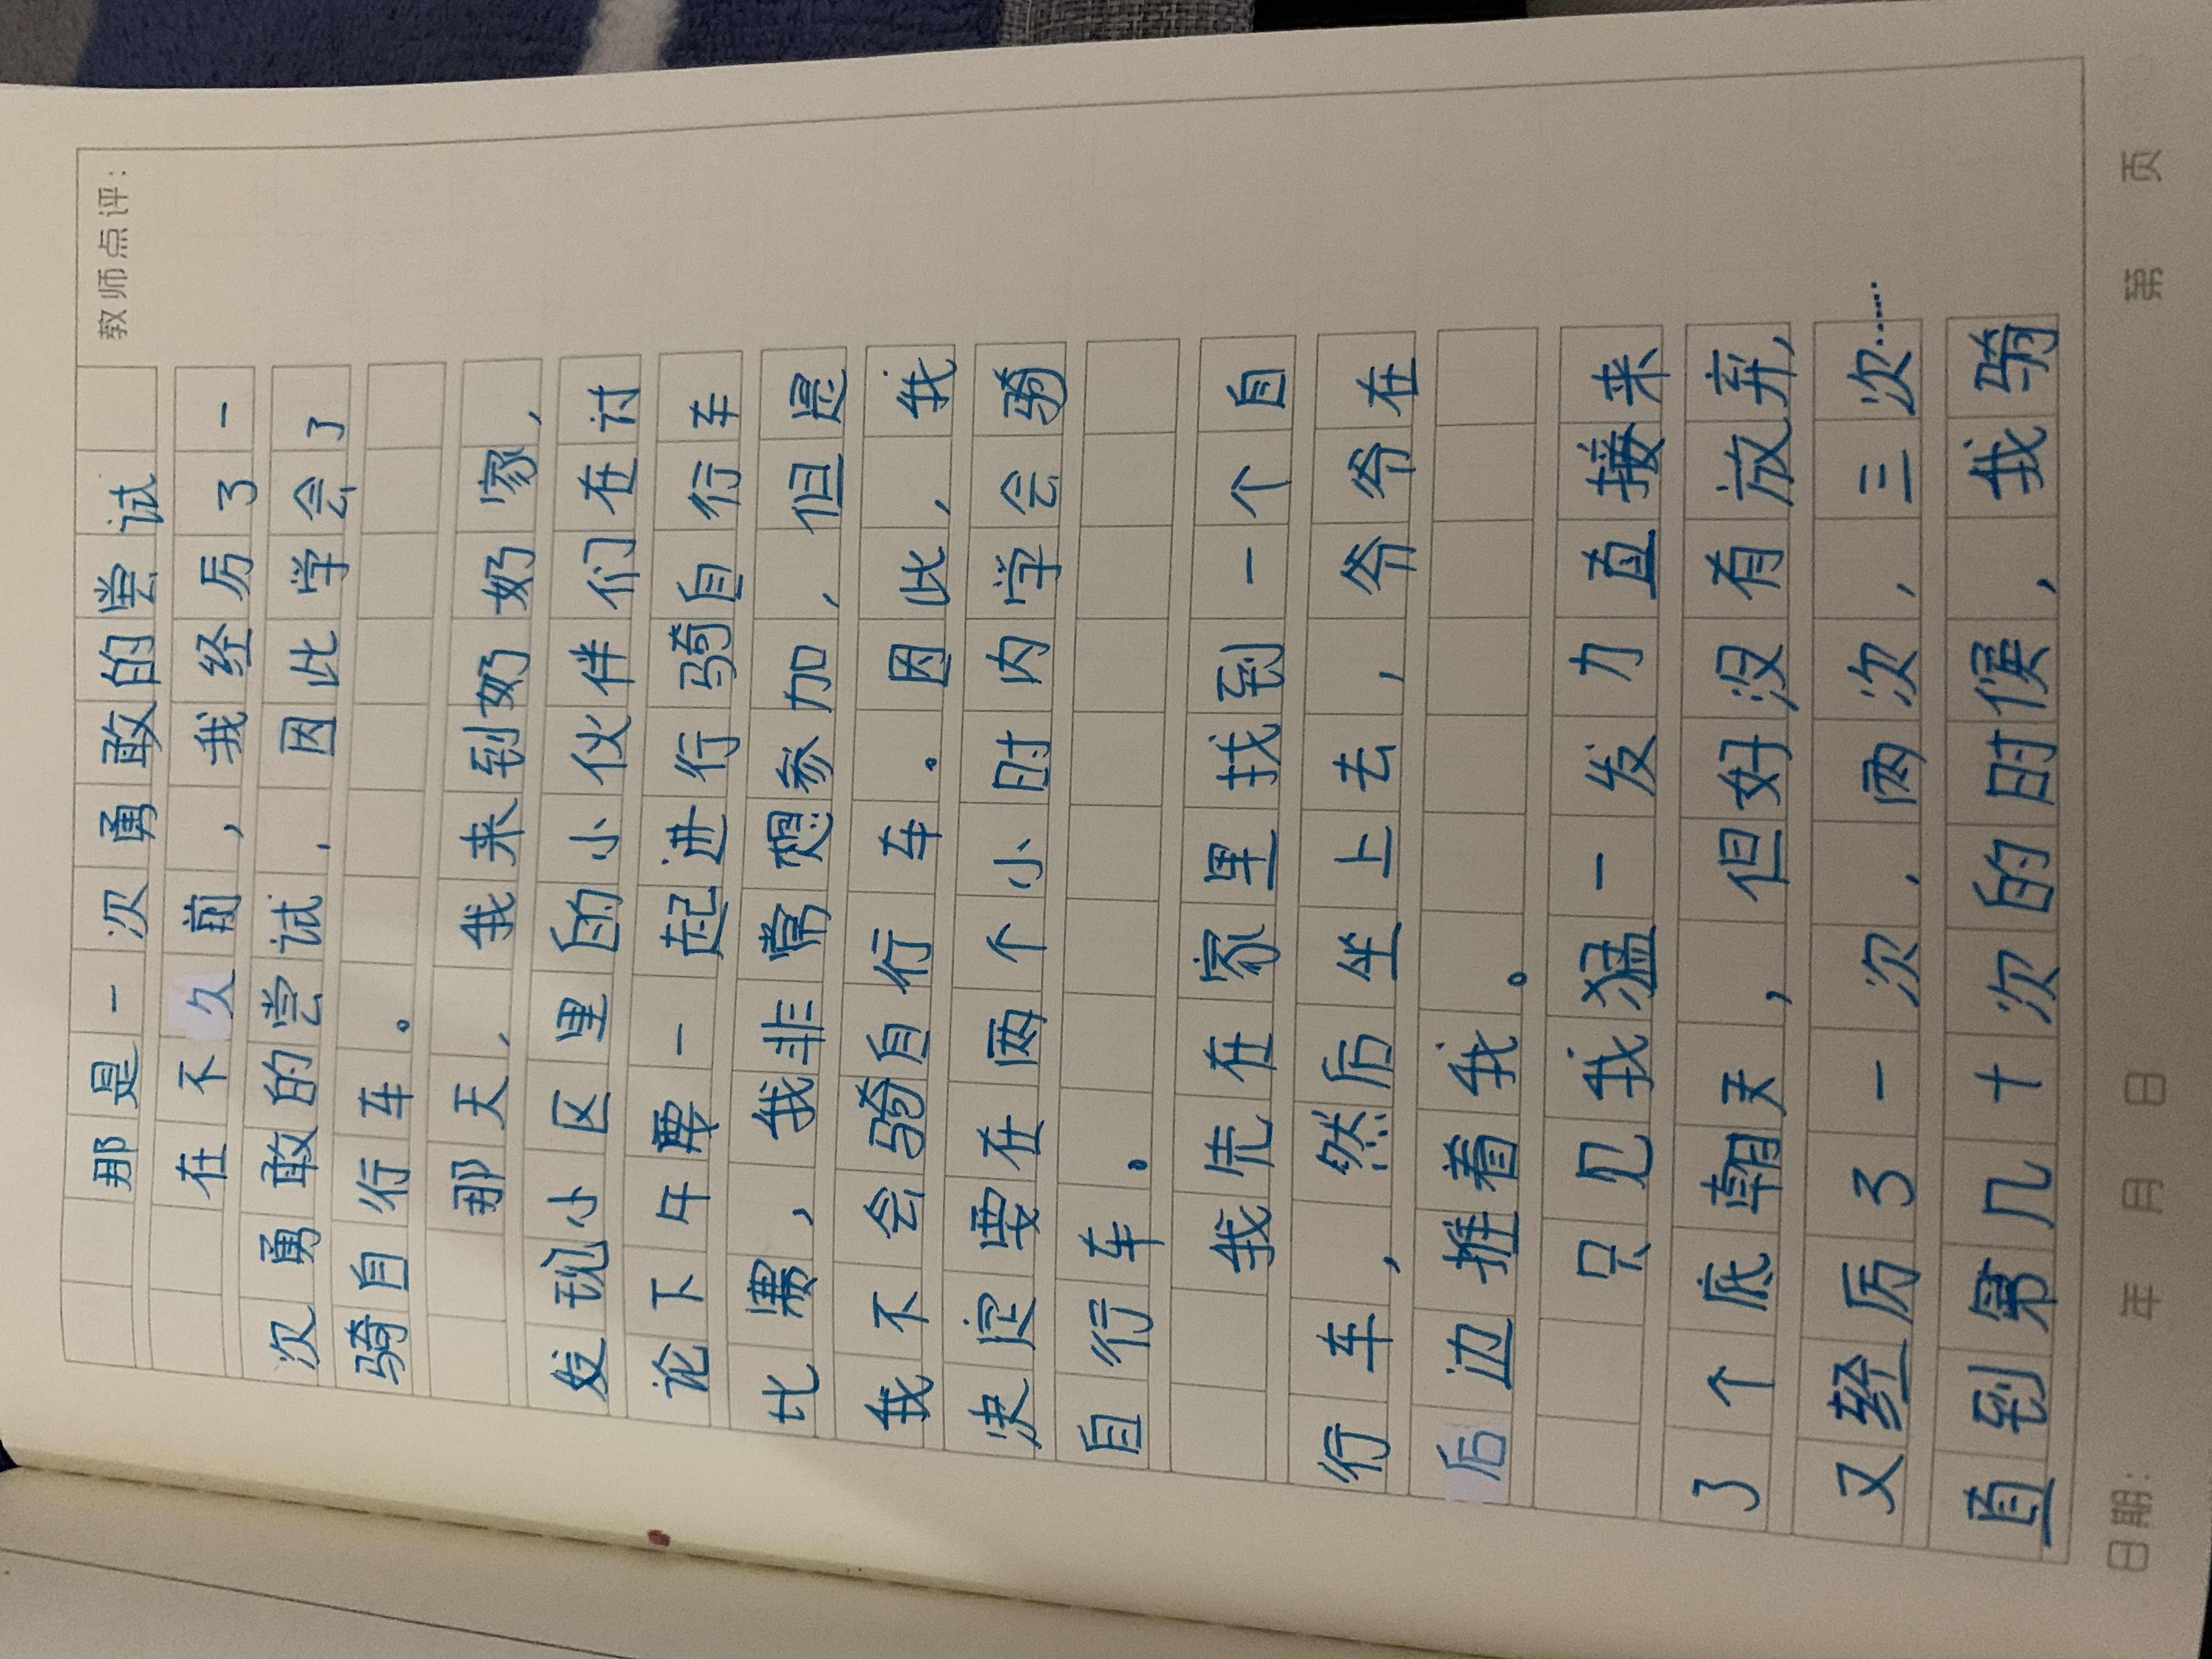 教师点评：
那是一次勇敢的尝试
在不久前，我经历了一
次勇敢的尝试，因此学会了
骑自行车。
那天，我来到奶奶家，
发现小区里的小伙伴们在讨
论下午要一起进行骑自行车
比赛，我非常想参加，但是
我不会骑自行车。因此，我
决定要在两个小时内学会骑
自行车。
我先在家里找到一个自
行车，然后坐上去，爷爷在
后边推着我。
只见我猛一发力直接来
了个底朝天，但好没有放弃，
又经历了一次，两次，三次……
直到第几十次的时候，我骑
日期： 年 月 日 第 页